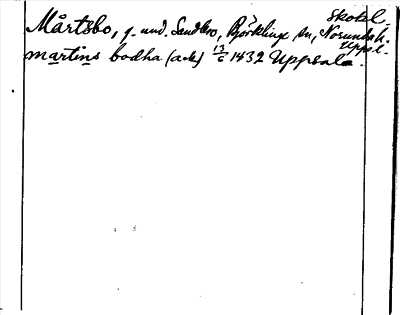 Skokl.
Mårtsbo, g. und. Sandbro, Björklinge sn, Norunda h.
Uppl.
martins bodha (ack) 13/6 1432 Uppsala.